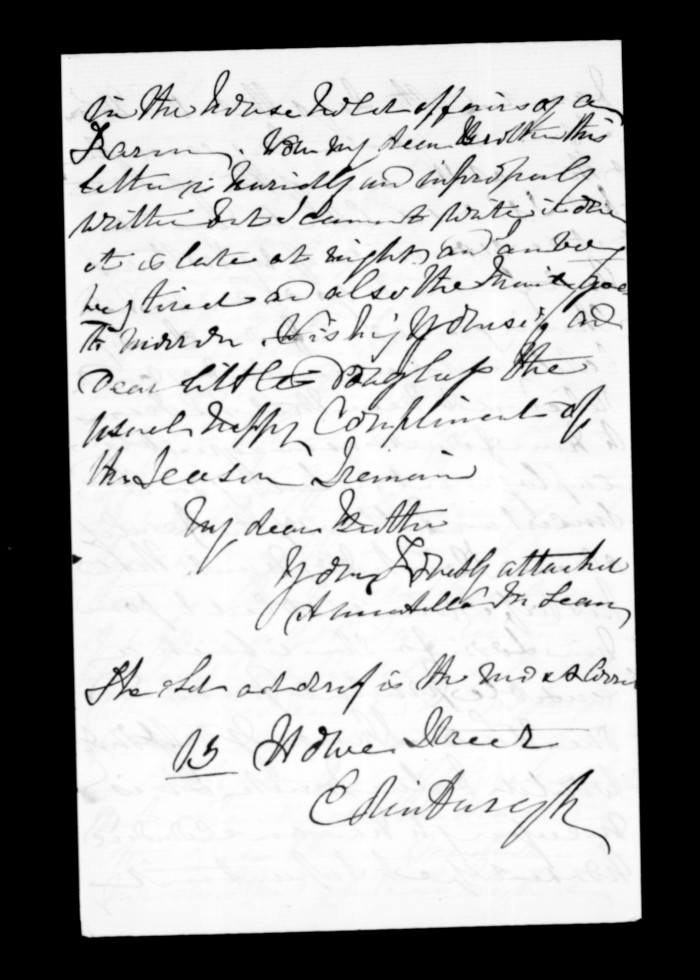 in the household affairs of a
Farm. Now my dear Brother this
letter is hurriedly and improperly
written but I cannot write
it is late at night and am
tired and also the Mail goes
to morrow. Wishing you and
Dear little Douglas the
usual happy Compliments of
the Season I remain
My dear Brother
Your Fondly attached
Annabella McLean
The address is the most Corr
13 Howe Street
Edinburgh